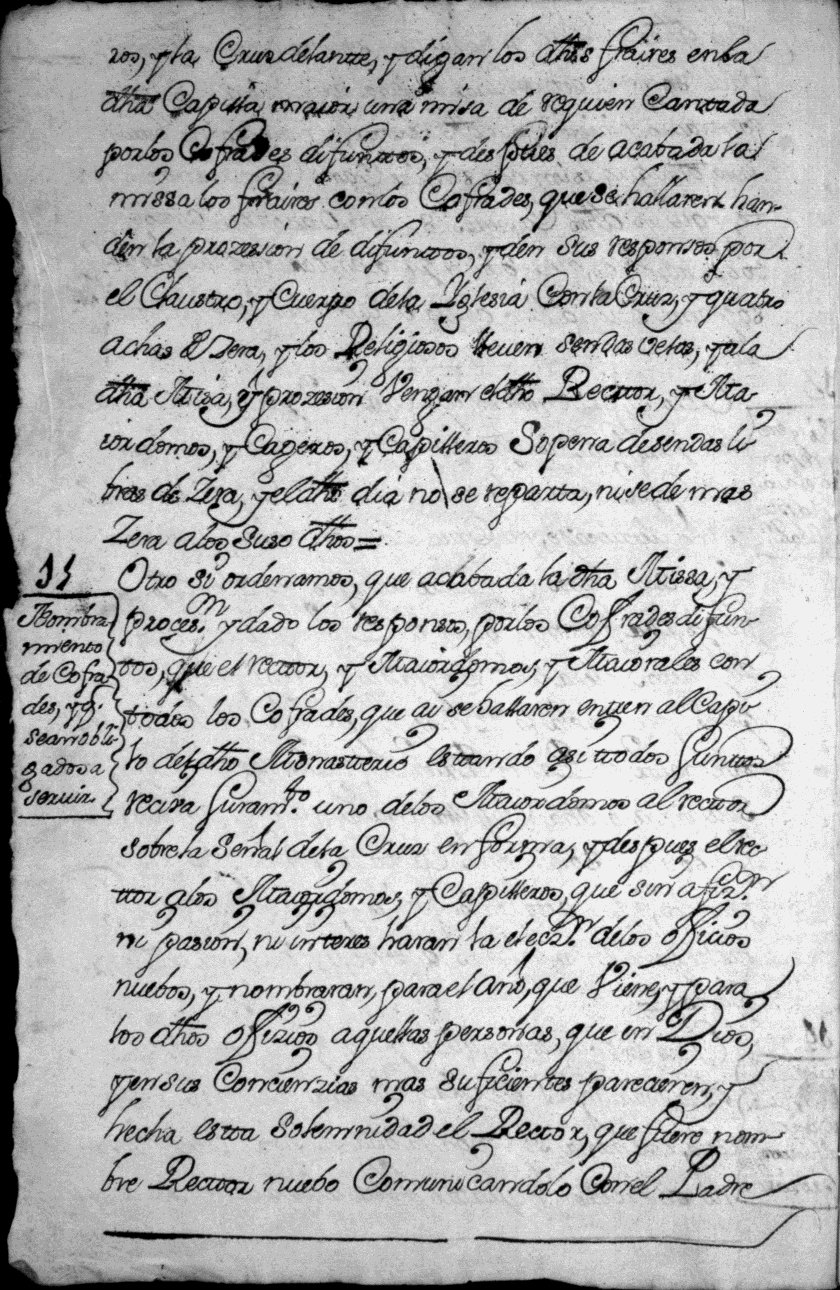 ros, y la Cruz delantte, y digan los dhos fraires en la
dha Capilla maior una misa de requien Cantada
por los Cofrades difunttos, y despues de acabada la
missa los fraires con los Cofrades, que se hallaren han-
den la prozession de difunttos, y den sus responsos por
el Claustro, y Cuerpo de la Yglesia Con la Cruz, y quatro
achas de Zera, y los Religiosos lleuen sendas velas, y a la
dha Missa, y prozesion Vengan el dho Recttor, y Ma-
iordomos, y Cageros, y Capilleros So pena de sendas li-
bras de Zera, y el dho dia no se reparta, ni se de mas
Zera a los suso dhos =
Otro si ordenamos, que acabada la dha Missa, y
proçes.n y dado los responsos, por los Cofrades difun-
ttos, que el recttor, y Maiordomos, y Maiorales con
todos los Cofrades, que ai se hallaren entren al Capi-
lo del dho Monastterio esttando asi ttodos Junttos
reciva Juram.to uno de los Maiordomos al recttor
sobre la Señal de la Cruz en forma, y despues el rec-
ttor a los Maiordomos, y Capilleros, que sin afiz.n
ni pasion, ni interes haran la elecz.n de los officios
nuebos, y nombraran, para el año, que Viene, y para
los dhos offizios aquellas personas, que en Dios,
y en sus Concienzias mas suficientes parecieren, y
hecha estta Solemnidad el Recttor, que fuere nom-
bre Recttor nuebo Comunicandolo Con el Padre
15
Nombra-
miento
de Cofra-
des, y q.e
sean obli-
gados a
seruir.